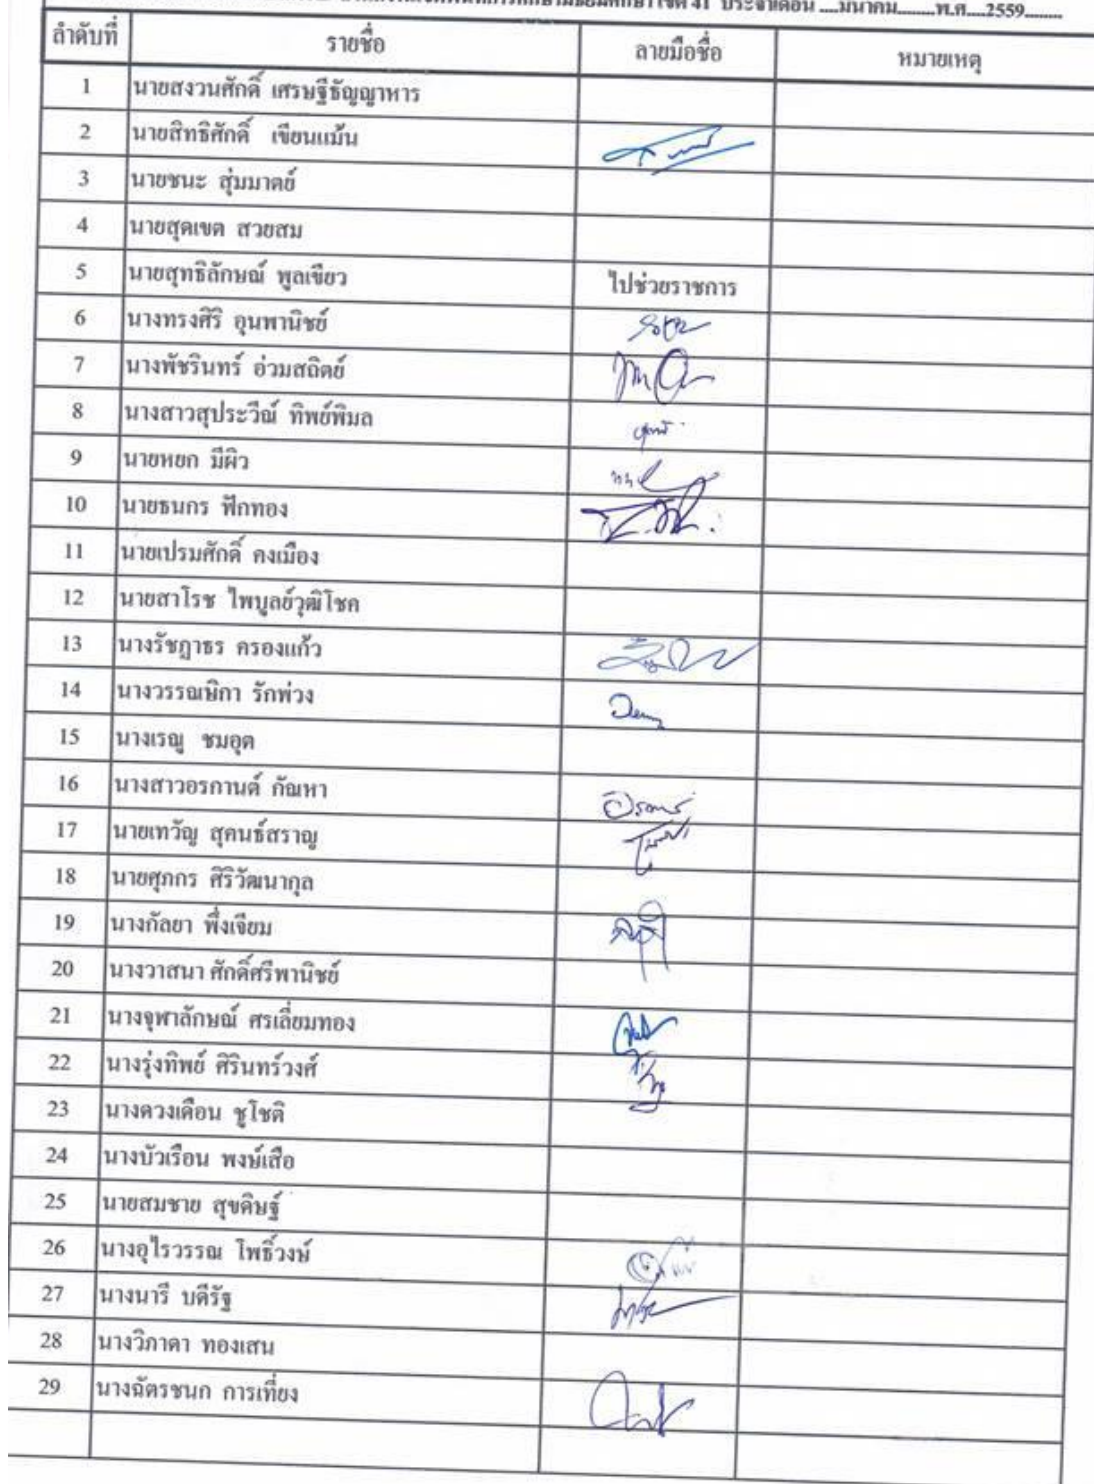 เขต 41 ประจำเดือน ....มีนาคม.........พ.ศ....2559........
ลำดับที่ รายชื่อ ลายมือชื่อ หมายเหตุ
1 นายสงวนศักดิ์ เศรษฐีธัญญาหาร
2 นายสิทธิศักดิ์ เขียนแม้น
3 นายชนะ สุ่มมาตย์
4 นายสุดเขต สวยสม
5 นายสุทธิลักษณ์ พูลเขียว ไปช่วยราชการ
6 นางทรงศิริ อุนพานิชย์
7 นางพัชรินทร์ อ่วมสถิตย์
8 นางสาวสุประวีณ์ ทิพย์พิมล
9 นายหยก มีผิว
10 นายธนกร ฟักทอง
11 นายเปรมศักดิ์ คงเมือง
12 นายสาโรช ไพบูลย์วุฒิโชค
13 นางรัชฎาธร ครองแก้ว
14 นางวรรณษิกา รักพ่วง
15 นางเรณู ชมอุด
16 นางสาวอรกานต์ กัณหา
17 นายเทวัญ สุคนธ์สราญ
18 นายศุภกร ศิริวัฒนากุล
19 นางกัลยา พึ่งเจียม
20 นางวาสนา ศักดิ์ศรีพานิชย์
21 นางจุฬาลักษณ์ ศรเลี่ยมทอง
22 นางรุ่งทิพย์ ศิรินทร์วงศ์
23 นางดวงเดือน ชูโชติ
24 นางบัวเรือน พงษ์เสือ
25 นายสมชาย สุขดิษฐ์
26 นางอุไรวรรณ โพธิ์วงษ์
27 นางนารี บดีรัฐ
28 นางวิภาดา ทองเสน
29 นางฉัตรชนก การเที่ยง